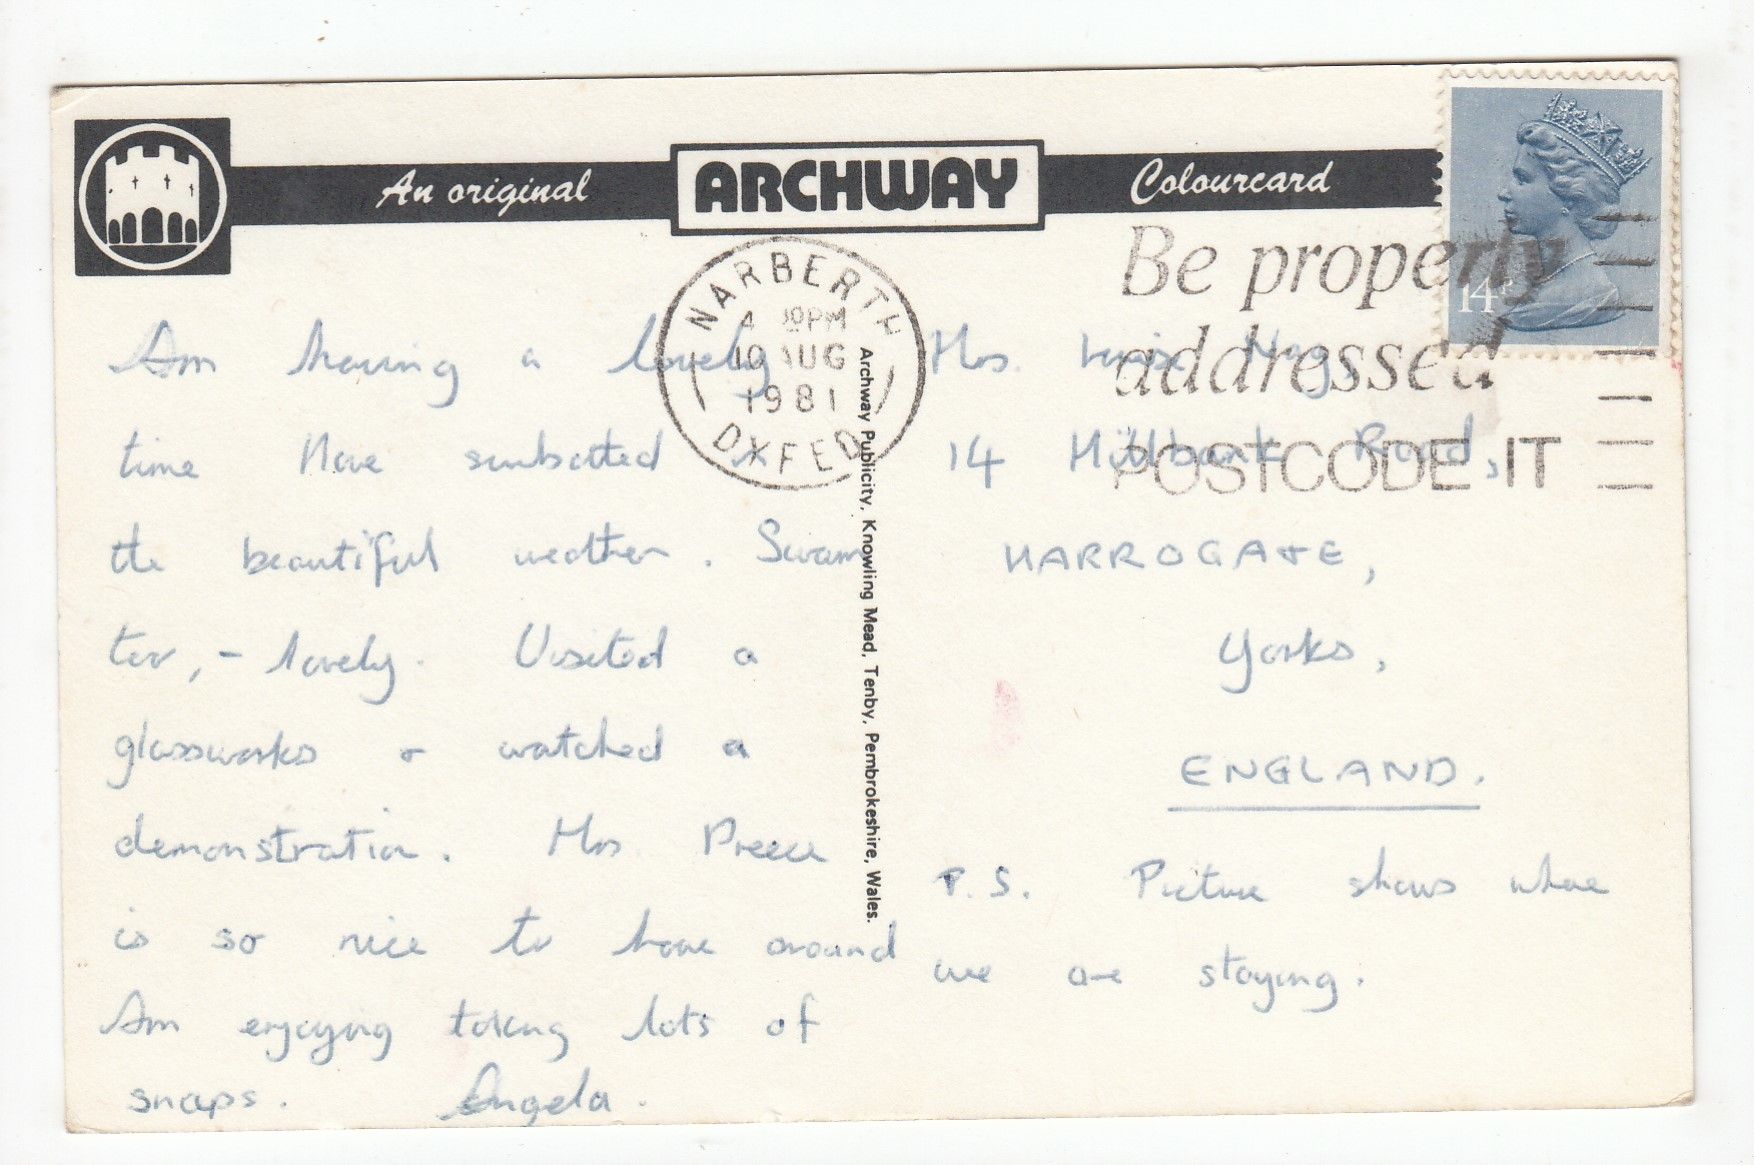 An original ARCHWAY Colourcard
NARBERTH
4 30PM
10 AUG
1981
DYFED
Be properly
addressed
POSTCODE IT
14P
Am having a lovely
time Have sunbathed in
the beautiful weather. Swam
too, - lovely. Visited a
glassworks + watched a
demonstration. Mrs Preece
is so nice to have around
Am enjoying taking lots of
snaps. Angela.
Archway Publicity, Knowling Mead, Tenby, Pembrokeshire, Wales.
Mrs.
14 Millbank Road,
HARROGATE,
Yorks,
ENGLAND.
P.S. Picture shows where
we are staying.